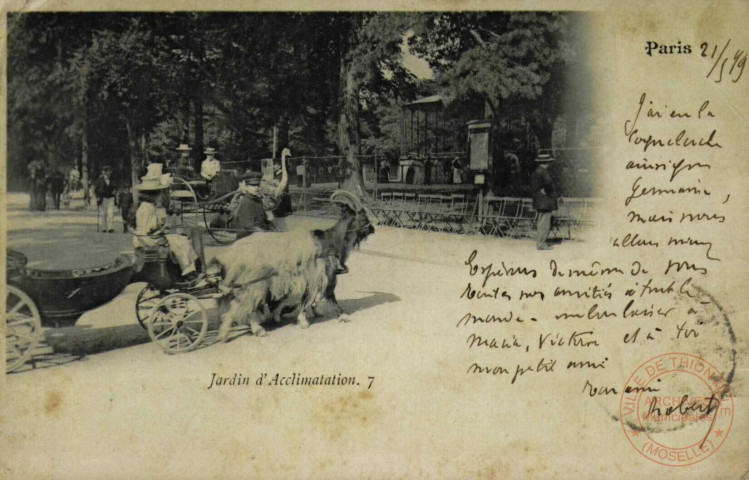 Paris 21/5/99
J'ai eu la
Coqueluche
ainsi que
Germaine,
mais nous
allons mieux
Espérons de même de vous
Toutes mes amitiés à tout le
monde - un bon baiser à
Maria, Victor et à toi
mon petit ami
Ton ami
Robert
Jardin d'Acclimatation. 7
VILLE DE THIONVILLE
ARCHIVES
Municipales
(MOSELLE)